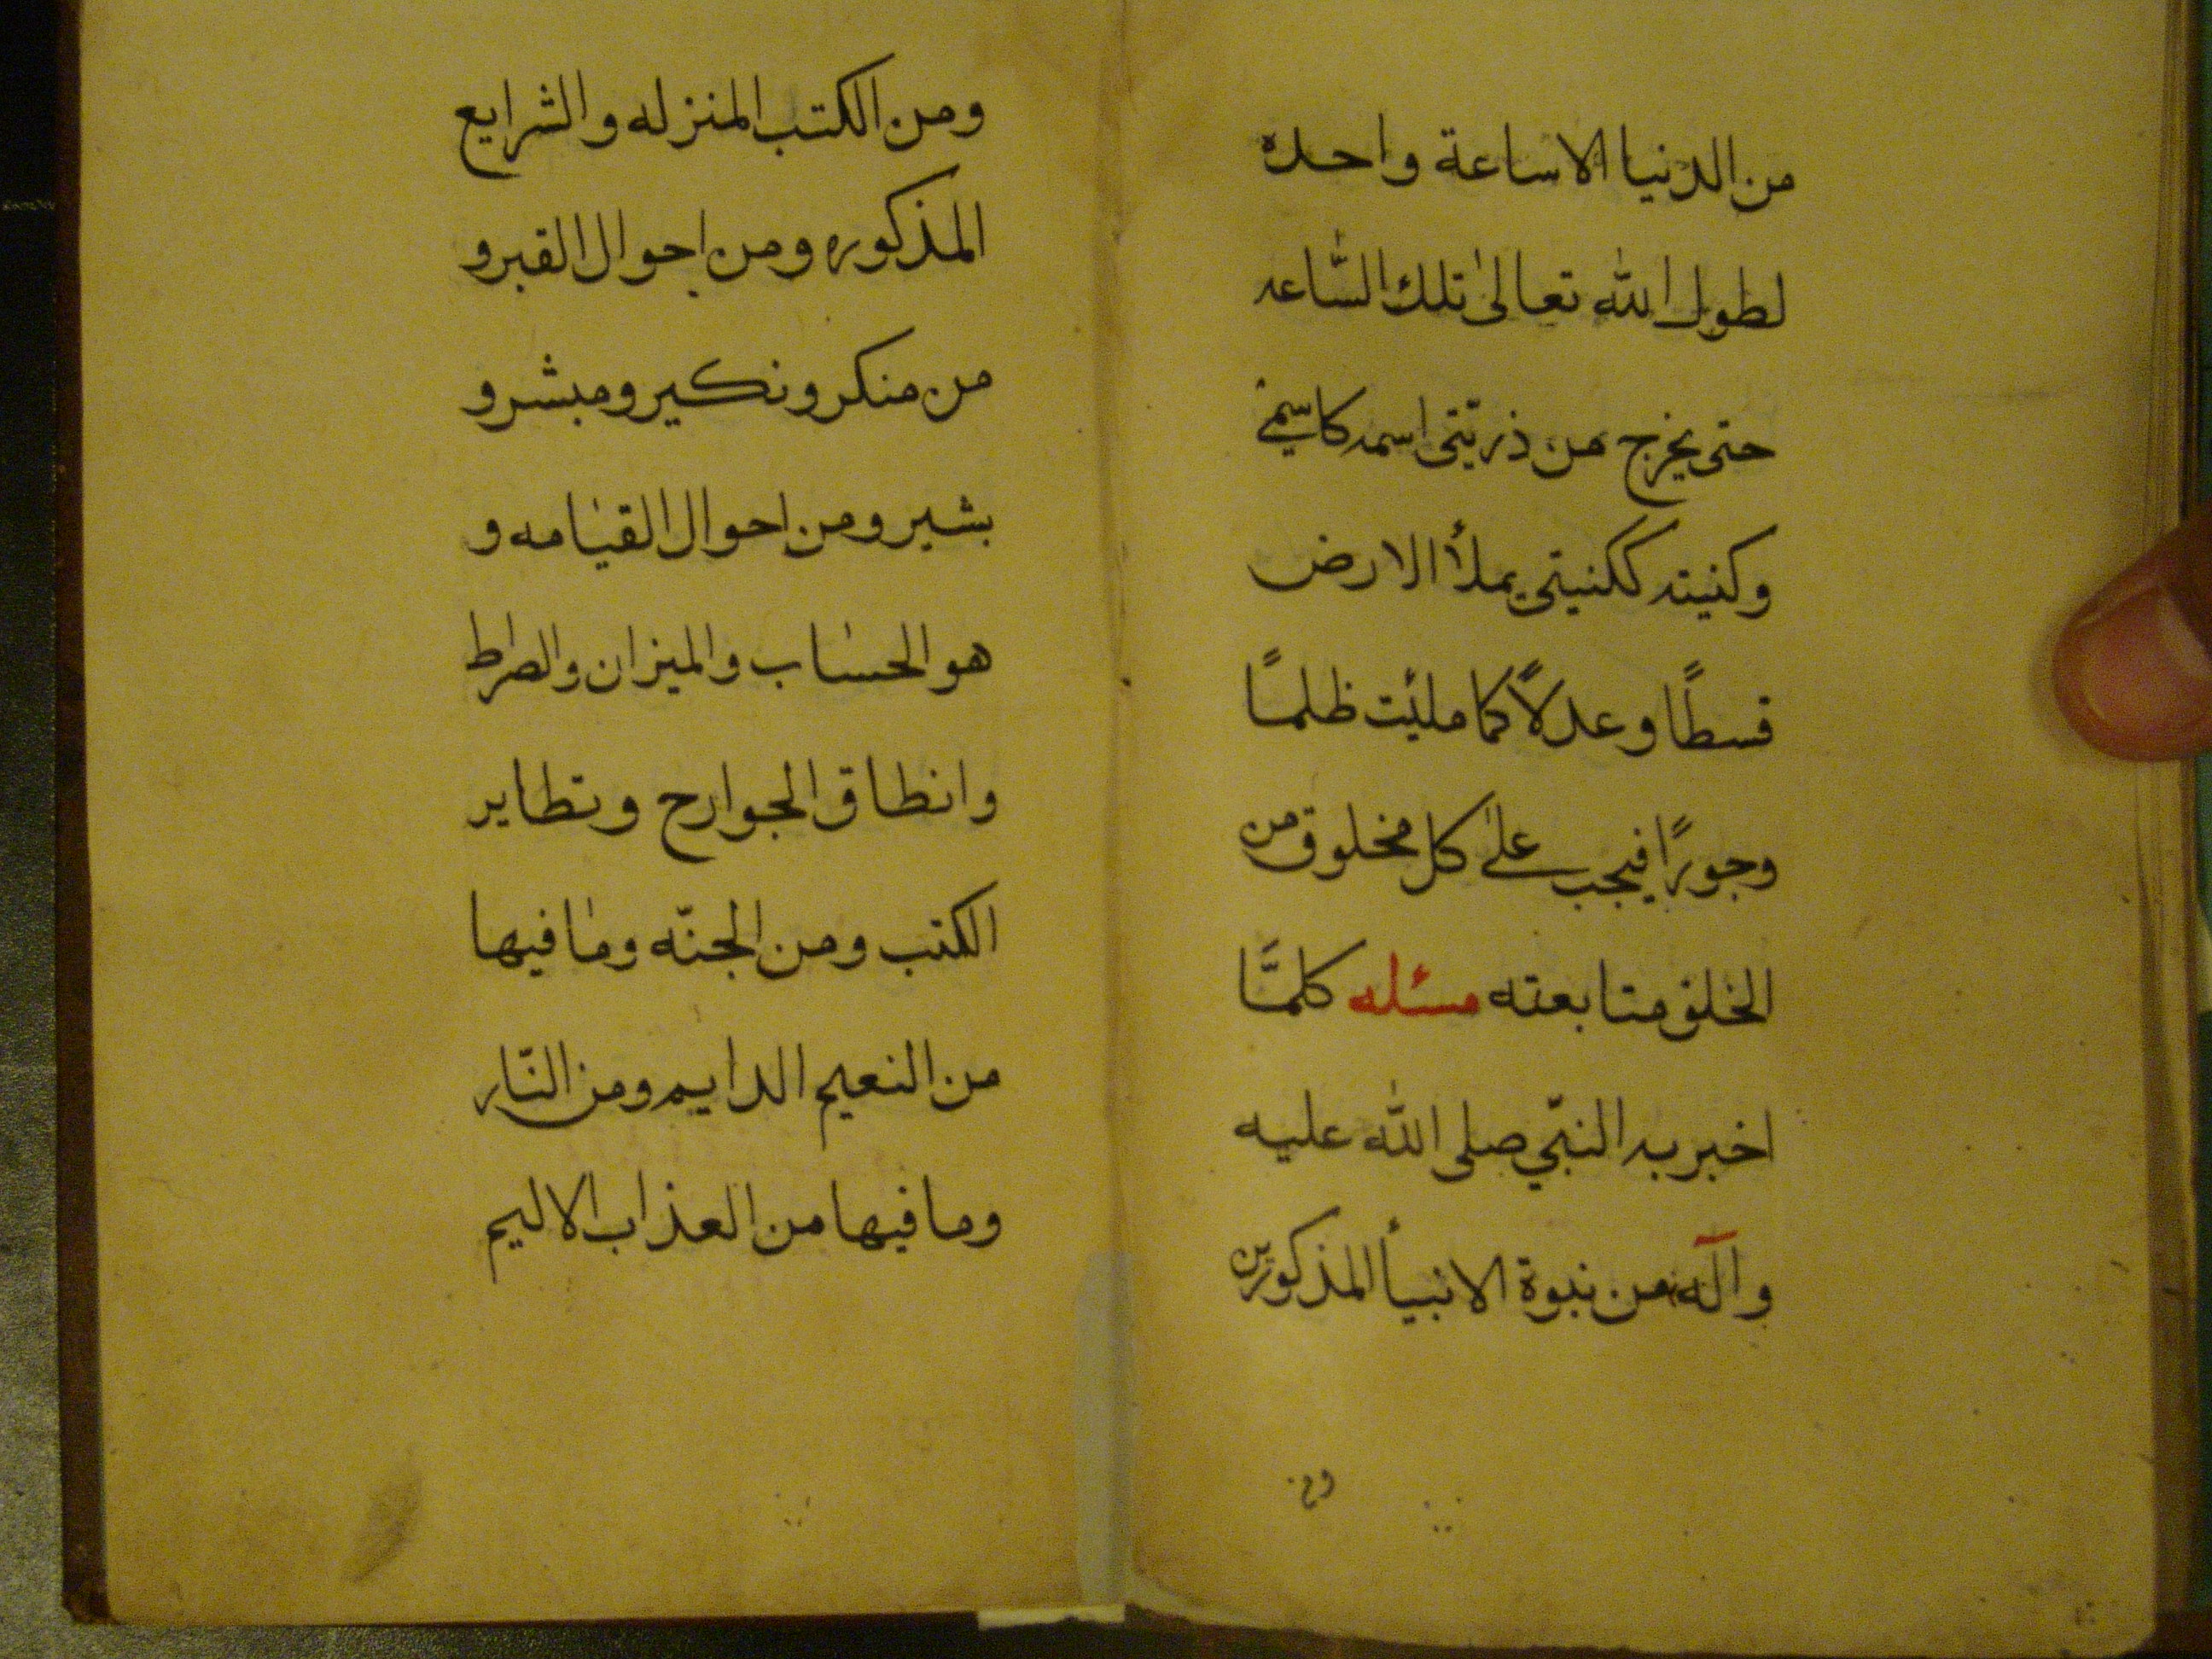 من الدنيا الا ساعة واحده
لطول الله تعالىٰ تلك السّاعه
حتى يخرج من ذريّتى اسمه كاسمى
وكنيته ككنيتى يملأ الارض
قسطًا وعدلاً كما ملئت ظلمًا
وجورًا فيجب علىٰ كل مخلوق من
الخلق متابعته مسئله كلمّا
اخبر به النبّي صلى الله عليه
وآله من نبوة الانبيأ المذكورين
ومن
ومن الكتب المنزله والشرايع
المذكوره ومن احوال القبر و
من منكر ونكير ومبشر و
بشير ومن احوال القيامه و
هو الحساب والميزان والصراط
وانطاق الجوارح وتطاير
الكتب ومن الجنّه وما فيها
من النعيم الدايم ومن النّار
وما فيها من العذاب الاليم